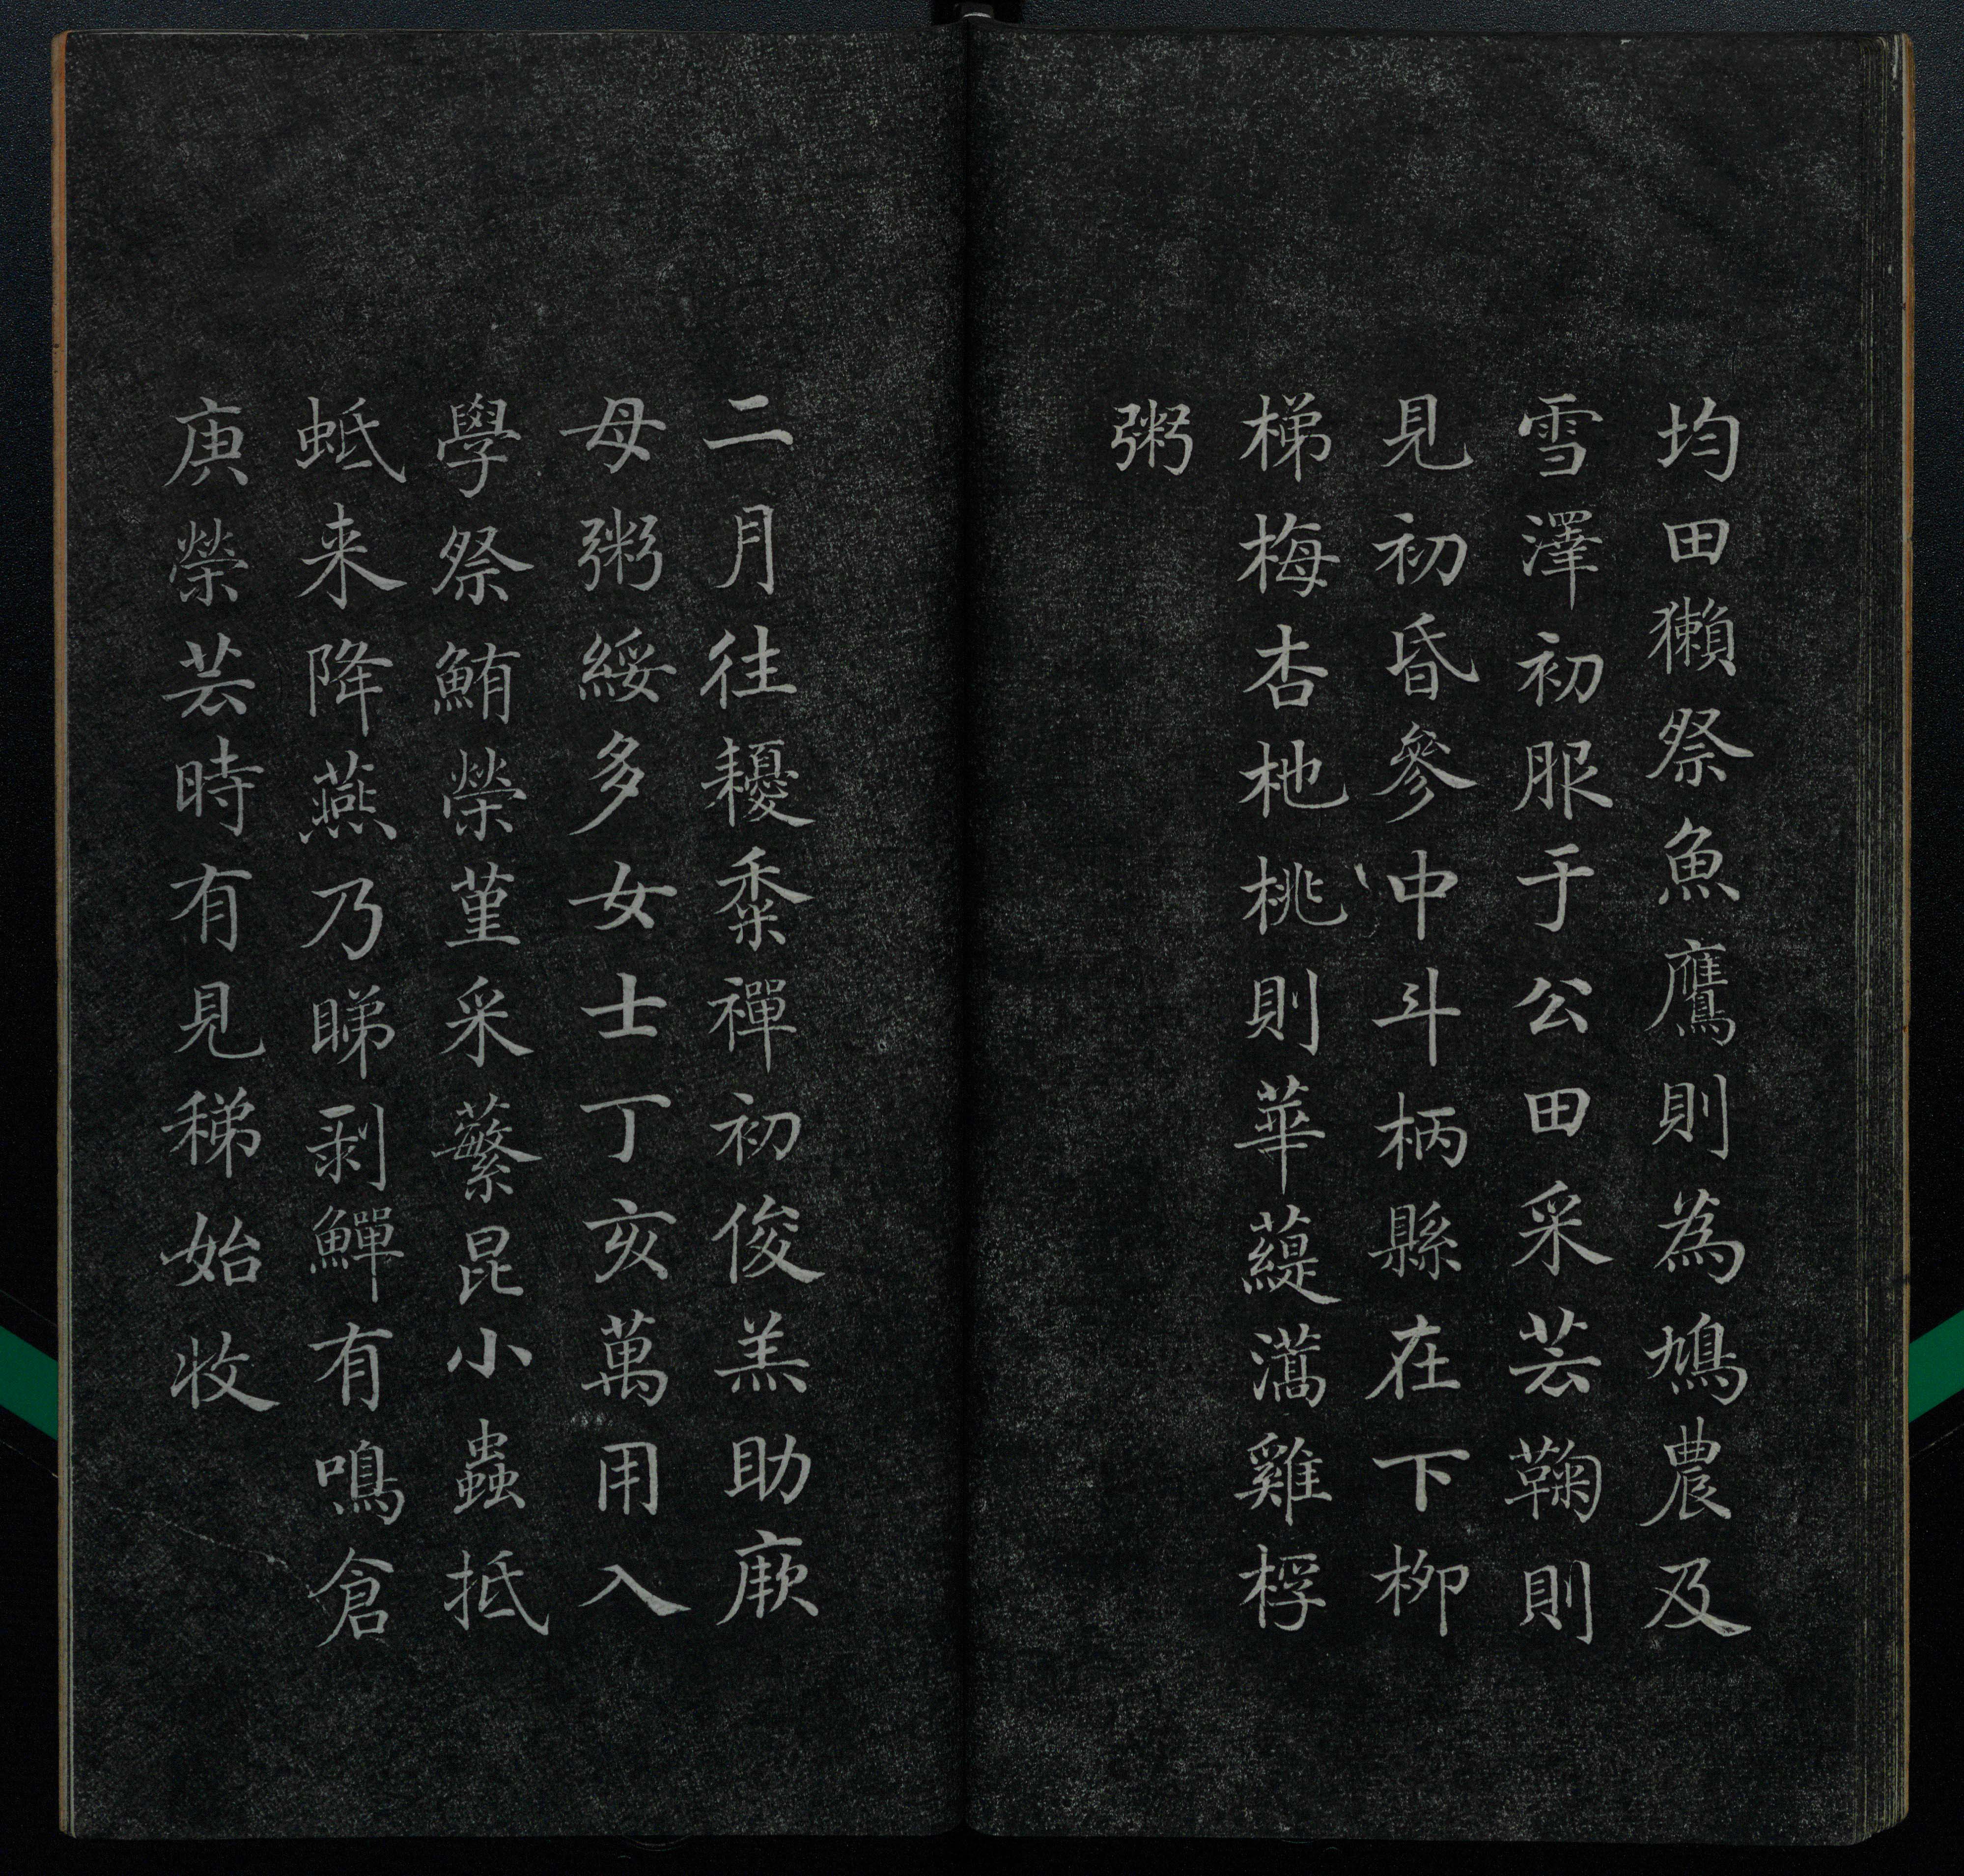 均田獺祭魚鷹則為鳩農及
雪澤初服于公田采芸鞠則
見初昏參中斗柄縣在下柳
梯梅杏杝桃則華緹濡雞桴
粥
二月往耰黍禪初俊羔助厥
母粥綏多女士丁亥萬用入
學祭鮪榮堇采蘩昆小蟲抵
蚳来降燕乃睇剥鱓有鳴倉
庚榮芸時有見稊始收